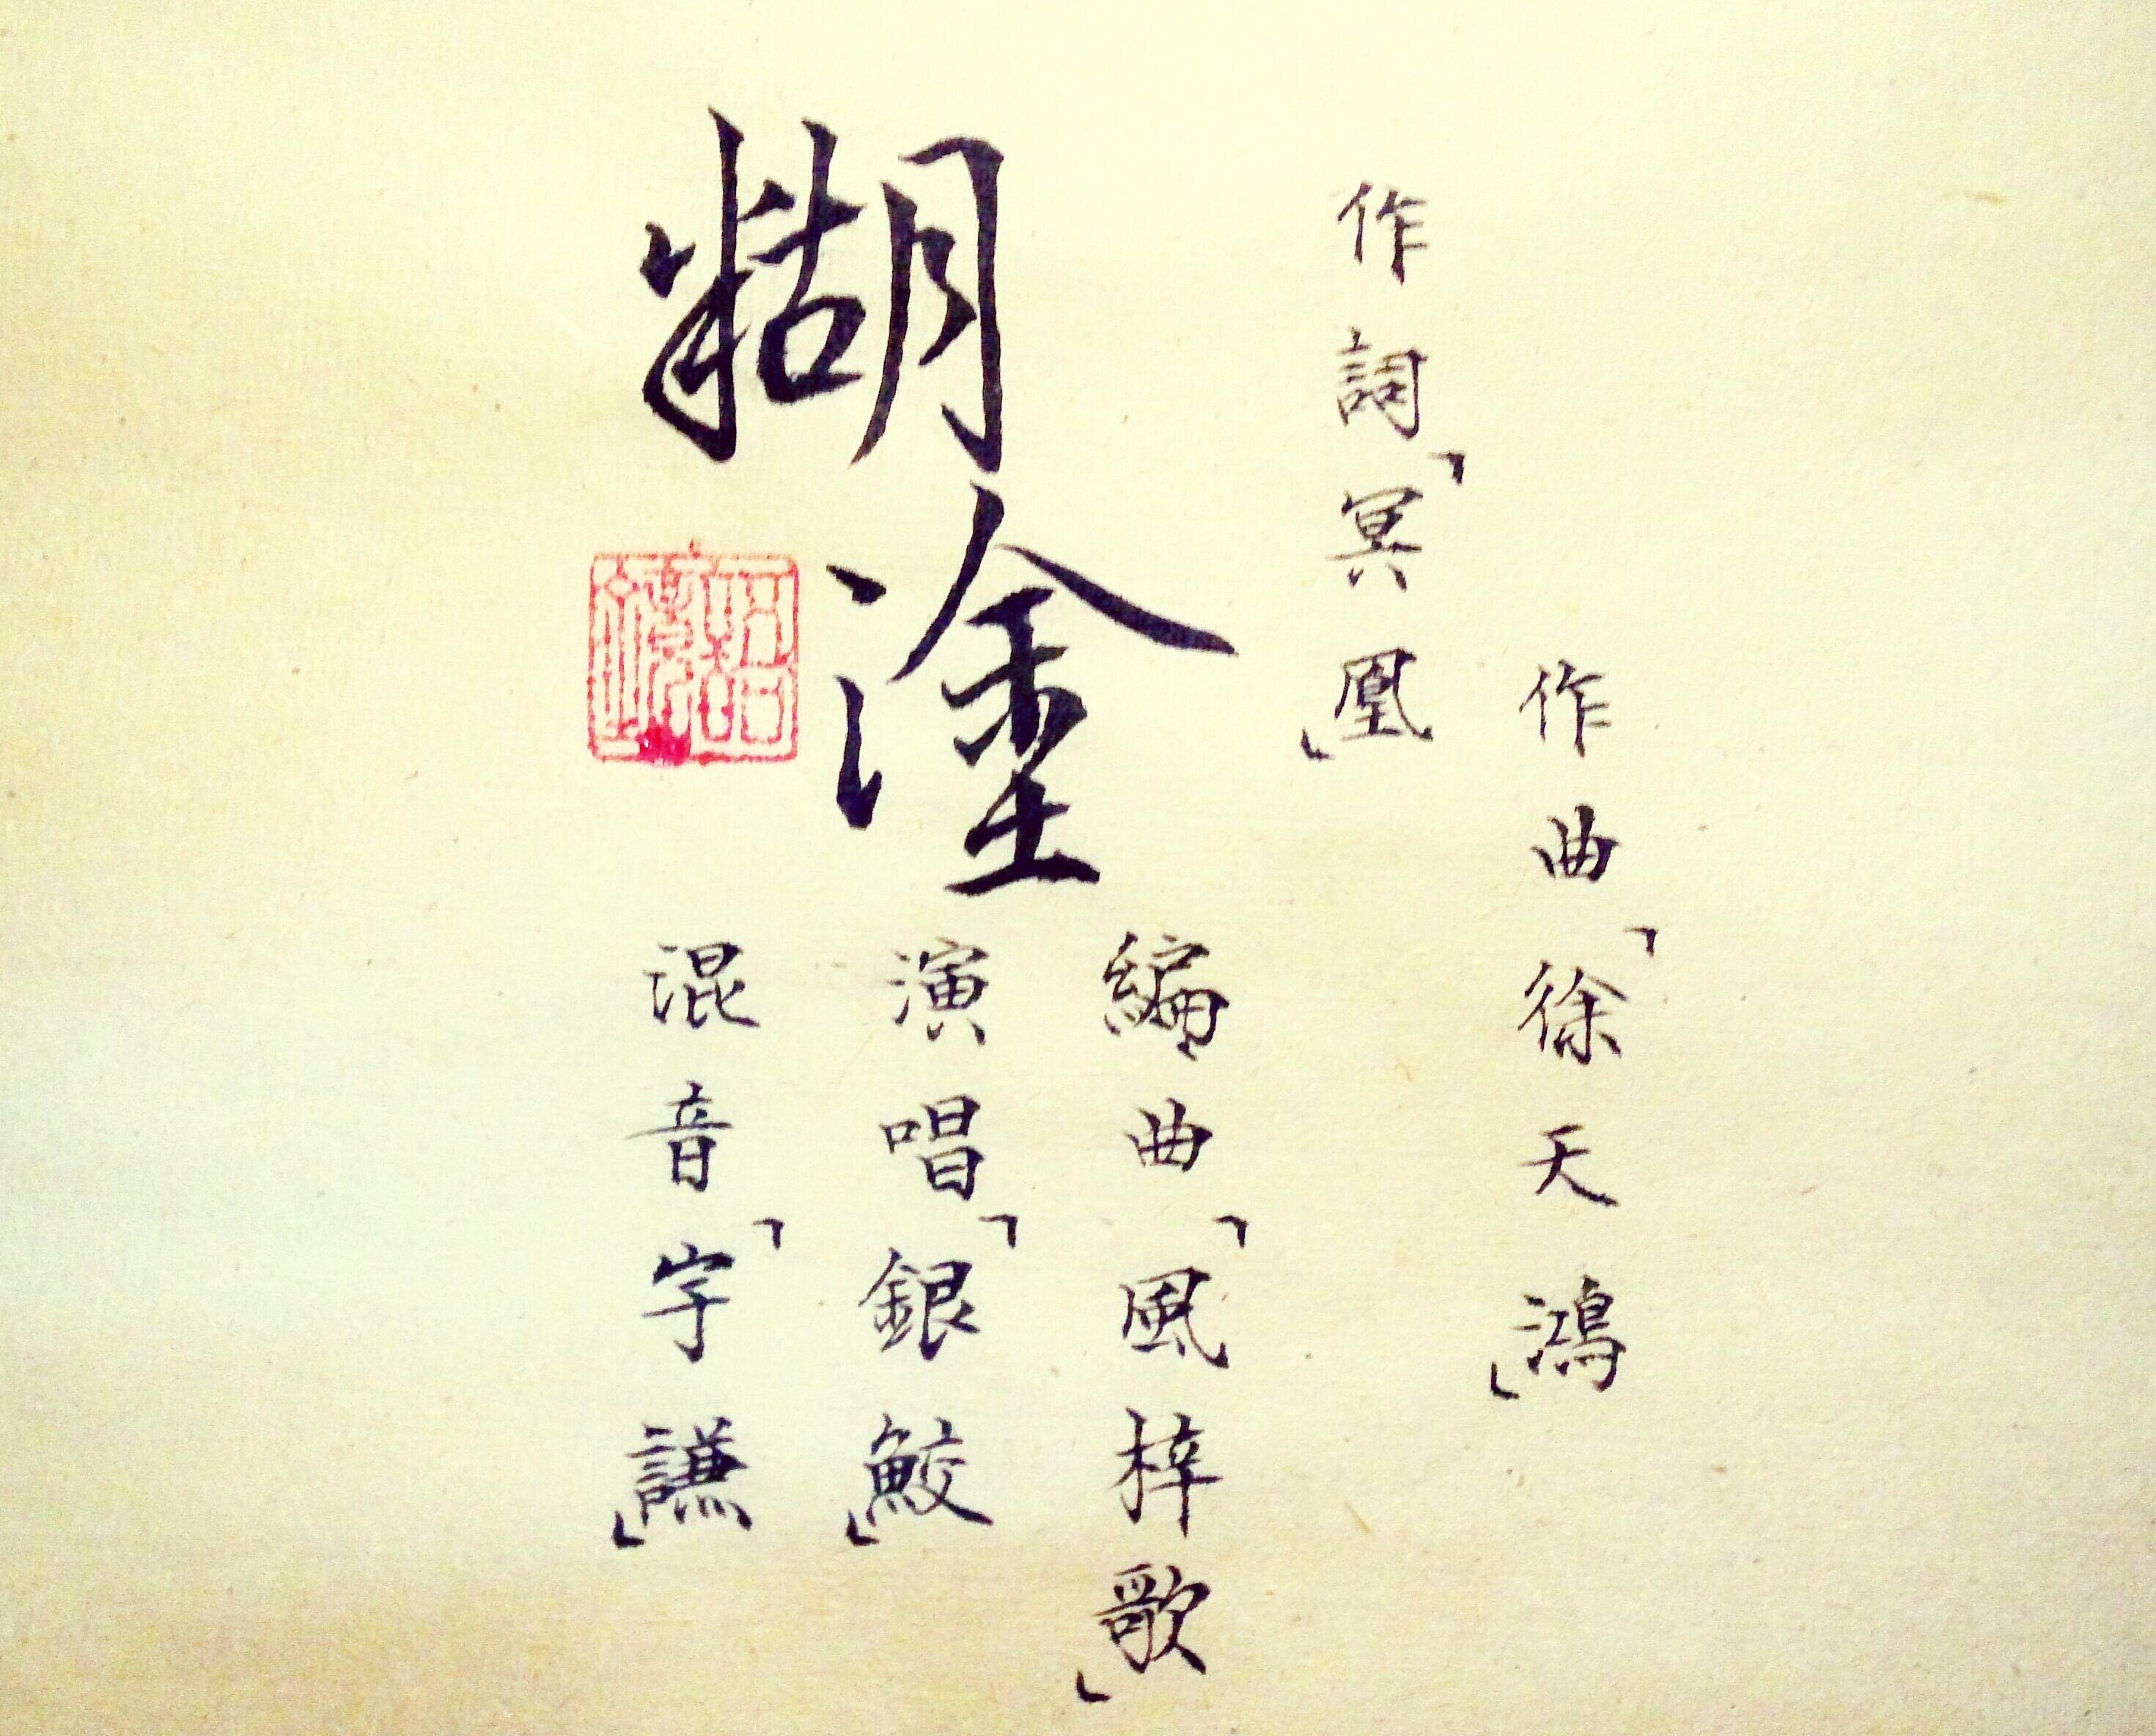 作曲「徐天鴻」
作詞「冥凰」
糊塗
編曲「風梓歌」
演唱「銀鮫」
混音「宇謙」